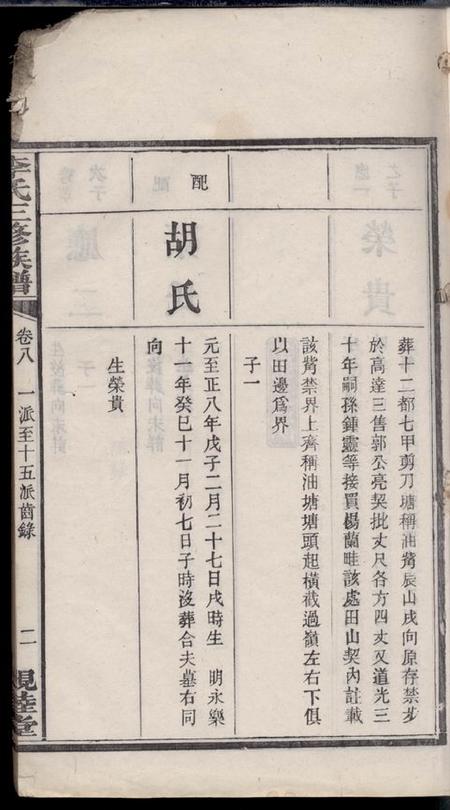 葬十二都七甲剪刀塘稱油崙辰山戌向原存禁步
於高達三售郭公亮契批丈尺各方四丈又道光三
十年嗣孫鍾靈等接買楊蘭畦該處田山契內註載
該崙禁界上齊稱油塘塘頭起橫截過嶺左右下俱
以田邊爲界
子一
配
胡氏
元至正八年戊子二月二十七日戌時生　明永樂
十一年癸巳十一月初七日子時沒葬合夫墓右同
向
生榮貴
李氏三修族譜
卷八　一派至十五派齒錄
二
親睦堂